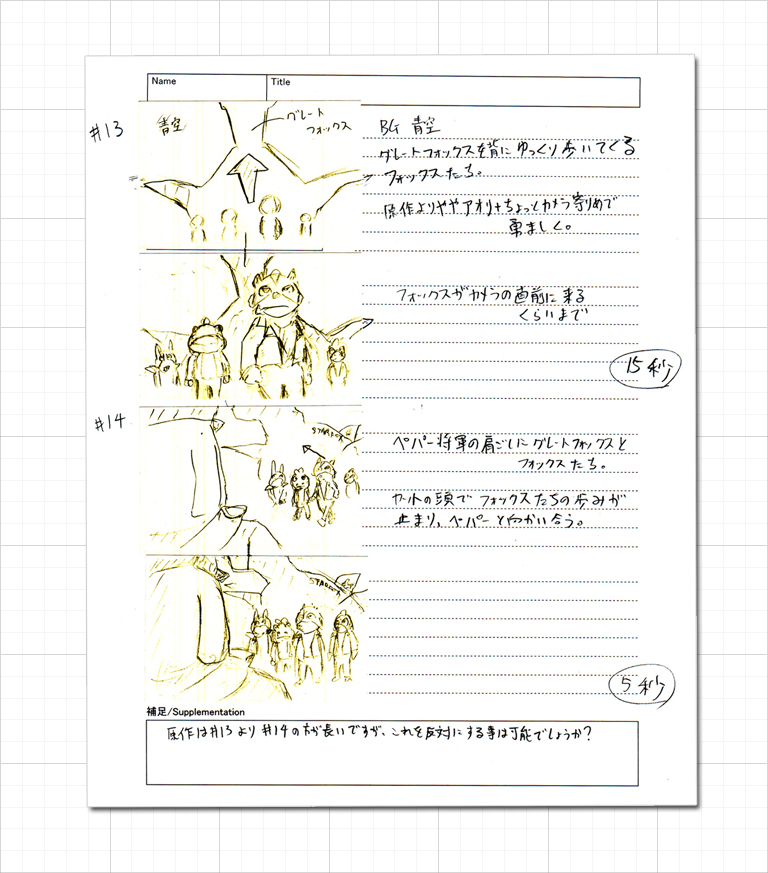 Name
Title
#13
青空
グレート
フォックス
BG 青空
グレートフォックスを背にゆっくり歩いてくる
フォックスたち。
原作よりややアオリ+ちょっとカメラ寄りめで
勇ましく。
フォックスがカメラの直前に来る
くらいまで
15秒
#14
STARFOX
ペパー将軍の肩ごしにグレートフォックスと
フォックスたち。
カットの頭でフォックスたちの歩みが
止まり、ペパーと向かい合う。
STARFOX
5秒
補足/Supplementation
原作は#13より#14の方が長いですが、これを反対にする事は可能でしょうか?